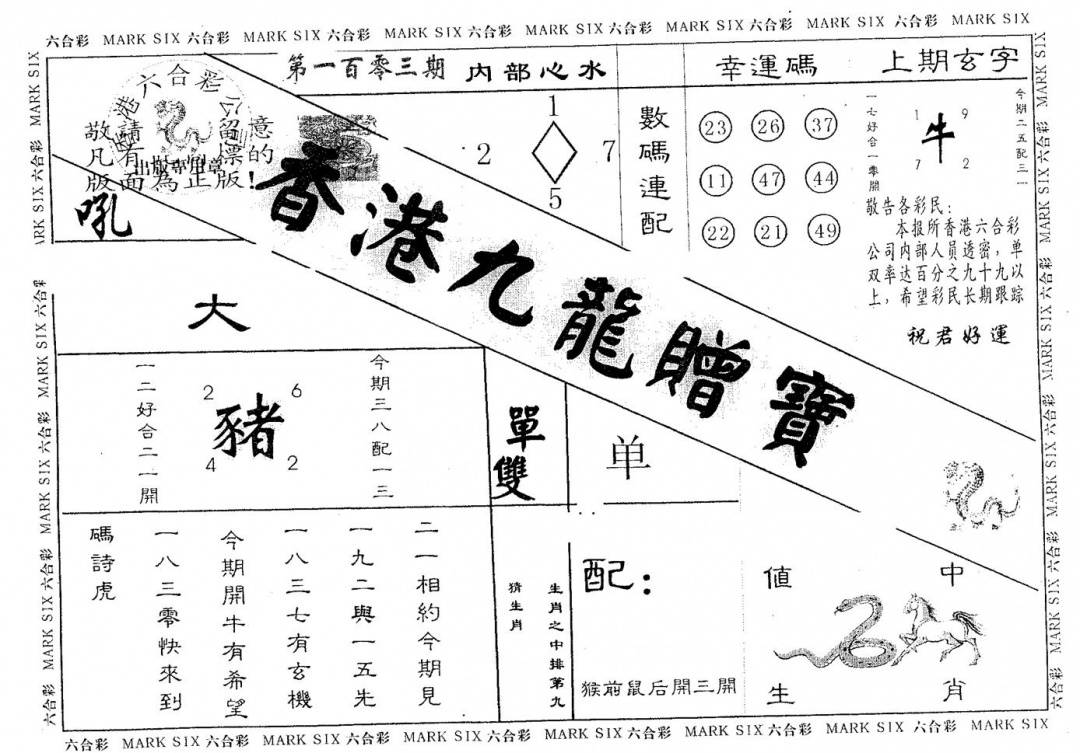 六合彩 MARK SIX 六合彩 MARK SIX 六合彩 MARK SIX 六合彩 MARK SIX 六合彩 MARK SIX 六合彩 MARK SIX 六合彩 MARK SIX
第一百零三期
内部心水
幸運碼
上期玄字
港六合彩公
敬請留意
凡有標的
版面為正版!
吼
1
2
7
5
數碼連配
23 26 37
11 47 44
22 21 49
一七好合一零開
1 9
牛
7 2
今期二五配三一
敬告各彩民:
本报所香港六合彩
公司内部人员透密,单
双率达百分之九十九以
上,希望彩民长期跟踪
祝君好運
香港九龍贈寶
大
一二好合二一開
2 6
豬
4 2
今期三八配一三
單雙
单
碼詩虎
一八三零快來到
今期開牛有希望
一八三七有玄機
一九二與一五先
二一相約今期見
猜生肖
生肖之中排第九
配:
猴前鼠后開三開
值中
生肖
六合彩 MARK SIX 六合彩 MARK SIX 六合彩 MARK SIX 六合彩 MARK SIX 六合彩 MARK SIX 六合彩 MARK SIX 六合彩 MARK SIX